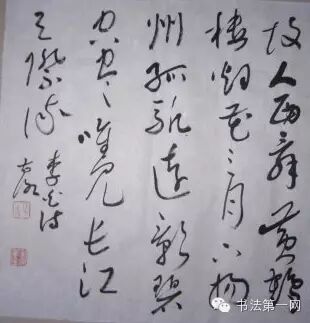 故人西辞黄鹤
楼烟花三月下扬
州孤帆远影碧
空尽唯见长江
天际流
李白诗
书法第一网